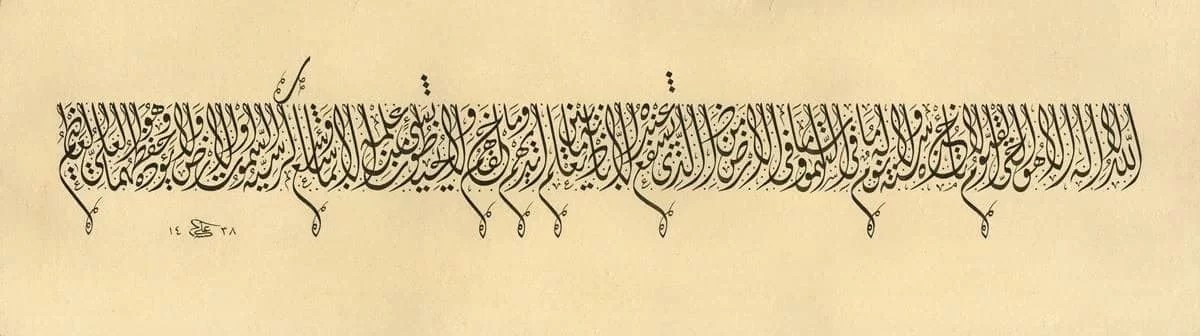 الله لا إله إلا هو الحي القيوم لا تأخذه سنة ولا نوم له ما في السموات وما في الأرض من ذا الذي يشفع عنده إلا بإذنه يعلم ما بين أيديهم وما خلفهم ولا يحيطون بشيء من علمه إلا بما شاء وسع كرسيه السموات والأرض ولا يؤده حفظهما وهو العلي العظيم
١٤ علي ٣٨